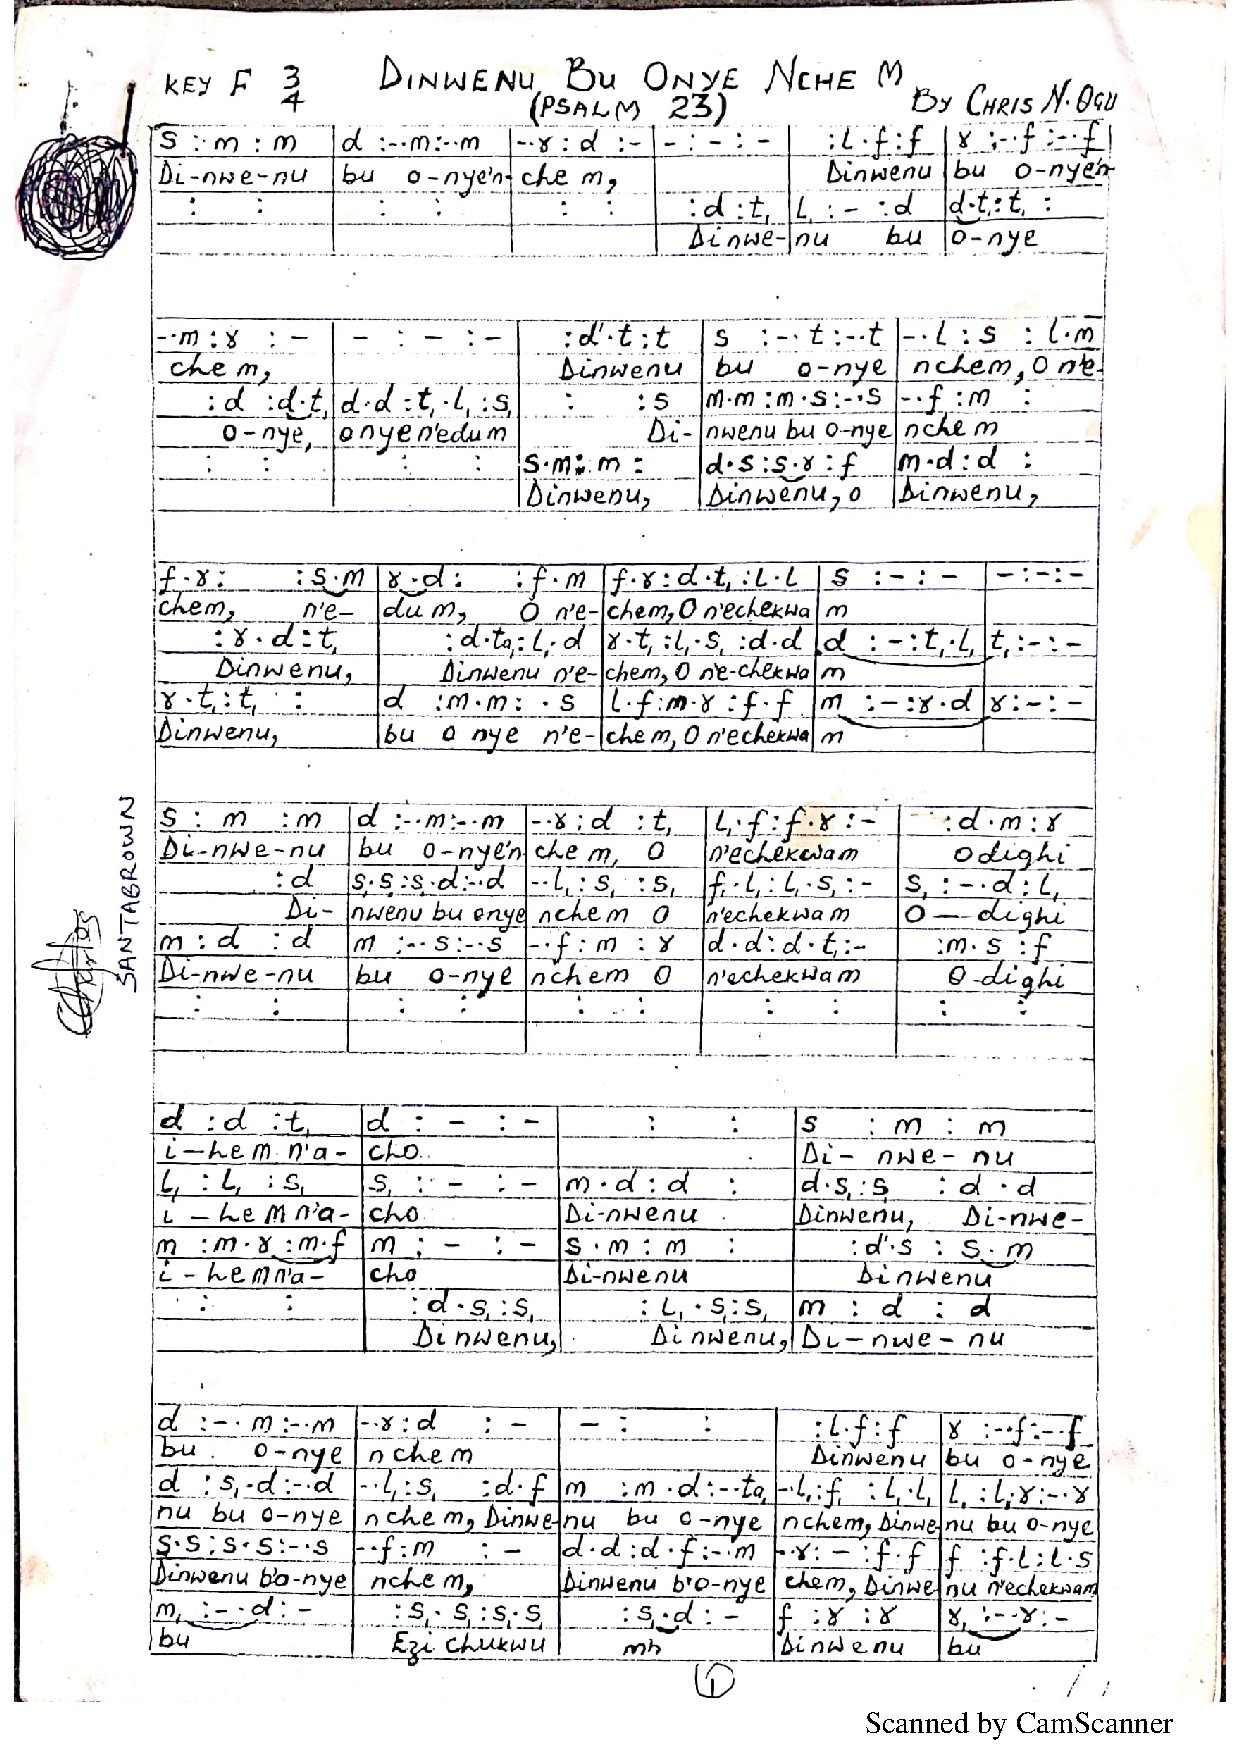 KEY F 3/4 DINWENU BU ONYE NCHE M
(PSALM 23)
By CHRIS N. OGU
s : m : m | d :-·m:-·m | -·r : d :- | - : - : - | :l·f:f | r :-·f:-·f
Di-nwe-nu | bu o-nye'n- | che m, | | Dinwenu | bu o-nye'n-
: : | : : | : : | :d :t, | l, : - :d | d·t,:t, :
Dinwe- | nu bu | o-nye
-·m:r : - | - : - : - | :d'·t:t | s :-·t:-·t | -·l : s : l·m
che m, | | Dinwenu | bu o-nye | nchem, O n'e-
:d :d·t, | d·d :t,·l, :s, | : :s | m·m:m·s:-·s | -·f :m :
o-nye, | onyen'edum | Di- | nwenu bu o-nye | nchem
: : | : : | s·m: m : | d·s:s·r:f | m·d:d :
Dinwenu, | Dinwenu, o | Dinwenu,
f·r: :s·m | r·d: :f·m | f·r:d·t,:l·l | s :- : - | -:-:-
chem, n'e- | du m, O n'e- | chem, O n'echekwa | m
:r·d:t, | :d·ta,:l,·d | r·t,:l,·s,:d·d | d :-:t,·l, | t,:-:-
Dinwenu, | Dinwenu n'e- | chem, O n'e-chekwa | m
r·t,:t, : | d :m·m: ·s | l·f:m·r:f·f | m :-:r·d | r:-:-
Dinwenu, | bu o nye n'e- | chem, O n'echekwa | m
s : m :m | d :-·m:-·m | -·r:d :t, | l,·f:f·r:- | :d·m:r
Di-nwe-nu | bu o-nye'n | che m, O | n'echekwam | O dighi
:d | s,·s,:s,·d:-·d | -·l,:s, :s, | f,·l,:l,·s,:- | s, :-·d:l,
Di- | nwenu bu onye | nchem O | n'echekwam | O — dighi
m : d :d | m :-·s:-·s | -·f :m :r | d·d:d·t,:- | :m·s:f
Di-nwe-nu | bu o-nye | nchem O | n'echekwam | O-dighi
: : | : : | : : | : : | : :
SANTABROWN
d :d :t, | d : - :- | : : | s : m : m
i-hem n'a- | cho | | Di- nwe-nu
l, : l, :s, | s, : - :- | m·d:d : | d·s,:s, :d·d
i-hem n'a- | cho | Di-nwenu | Dinwenu, Di-nwe-
m :m·r:m·f | m : - :- | s·m:m : | :d'·s : s·m
i-hem n'a- | cho | Di-nwenu | Dinwenu
: : | :d·s,:s, | :l,·s,:s, | m : d : d
Dinwenu, | Dinwenu, | Di-nwe-nu
d :-·m:-·m | -·r:d : - | - : : | :l·f:f | r :-·f:-·f
bu o-nye | nchem | | Dinwenu | bu o-nye
d :s,·d:-·d | -·l,:s, :d·f | m :m·d:-·ta, | -·l,:f, :l,·l, | l, :l,·r:-·r
nu bu o-nye | nchem, Dinwe- | nu bu o-nye | nchem, Dinwe- | nu bu o-nye
s·s:s·s:-·s | -·f:m : - | d·d:d·f:-·m | -·r:- :f·f | f :f·l:l·s
Dinwenu b'o-nye | nchem, | Dinwenu b'o-nye | chem, Dinwe- | nu n'echekwam
m, :-·d:- | :s,·s,:s,·s, | :s,·d:- | f :r :r | r, :-·r:-
bu | Ezi Chukwu | mh | Dinwenu | bu
1
Scanned by CamScanner